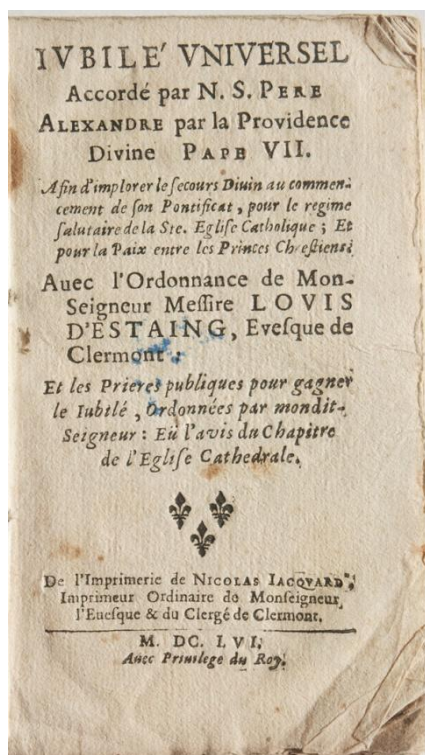 IVBILE' VNIVERSEL
Accordé par N. S. PERE
ALEXANDRE par la Providence
Divine PAPE VII.
Afin d'implorer le ſecours Diuin au commen-
cement de ſon Pontificat, pour le regime
ſalutaire de la Ste. Egliſe Catholique ; Et
pour la Paix entre les Princes Chreſtiens.
Auec l'Ordonnance de Mon-
Seigneur Meſſire LOVIS
D'ESTAING, Eveſque de
Clermont :
Et les Prieres publiques pour gagner
le Iubilé, Ordonnées par mondit-
Seigneur : Eû l'avis du Chapitre
de l'Egliſe Cathedrale.
De l'Imprimerie de NICOLAS IACQVARD,
Imprimeur Ordinaire de Monſeigneur
l'Eueſque & du Clergé de Clermont.
M. DC. LVI.
Auec Priuilege du Roy.